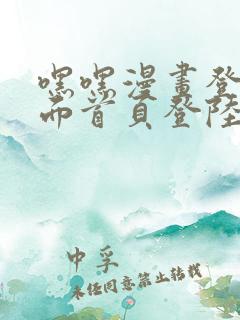 嘿嘿漫畫登
而首頁登陸
中孚
未经同意禁止转载